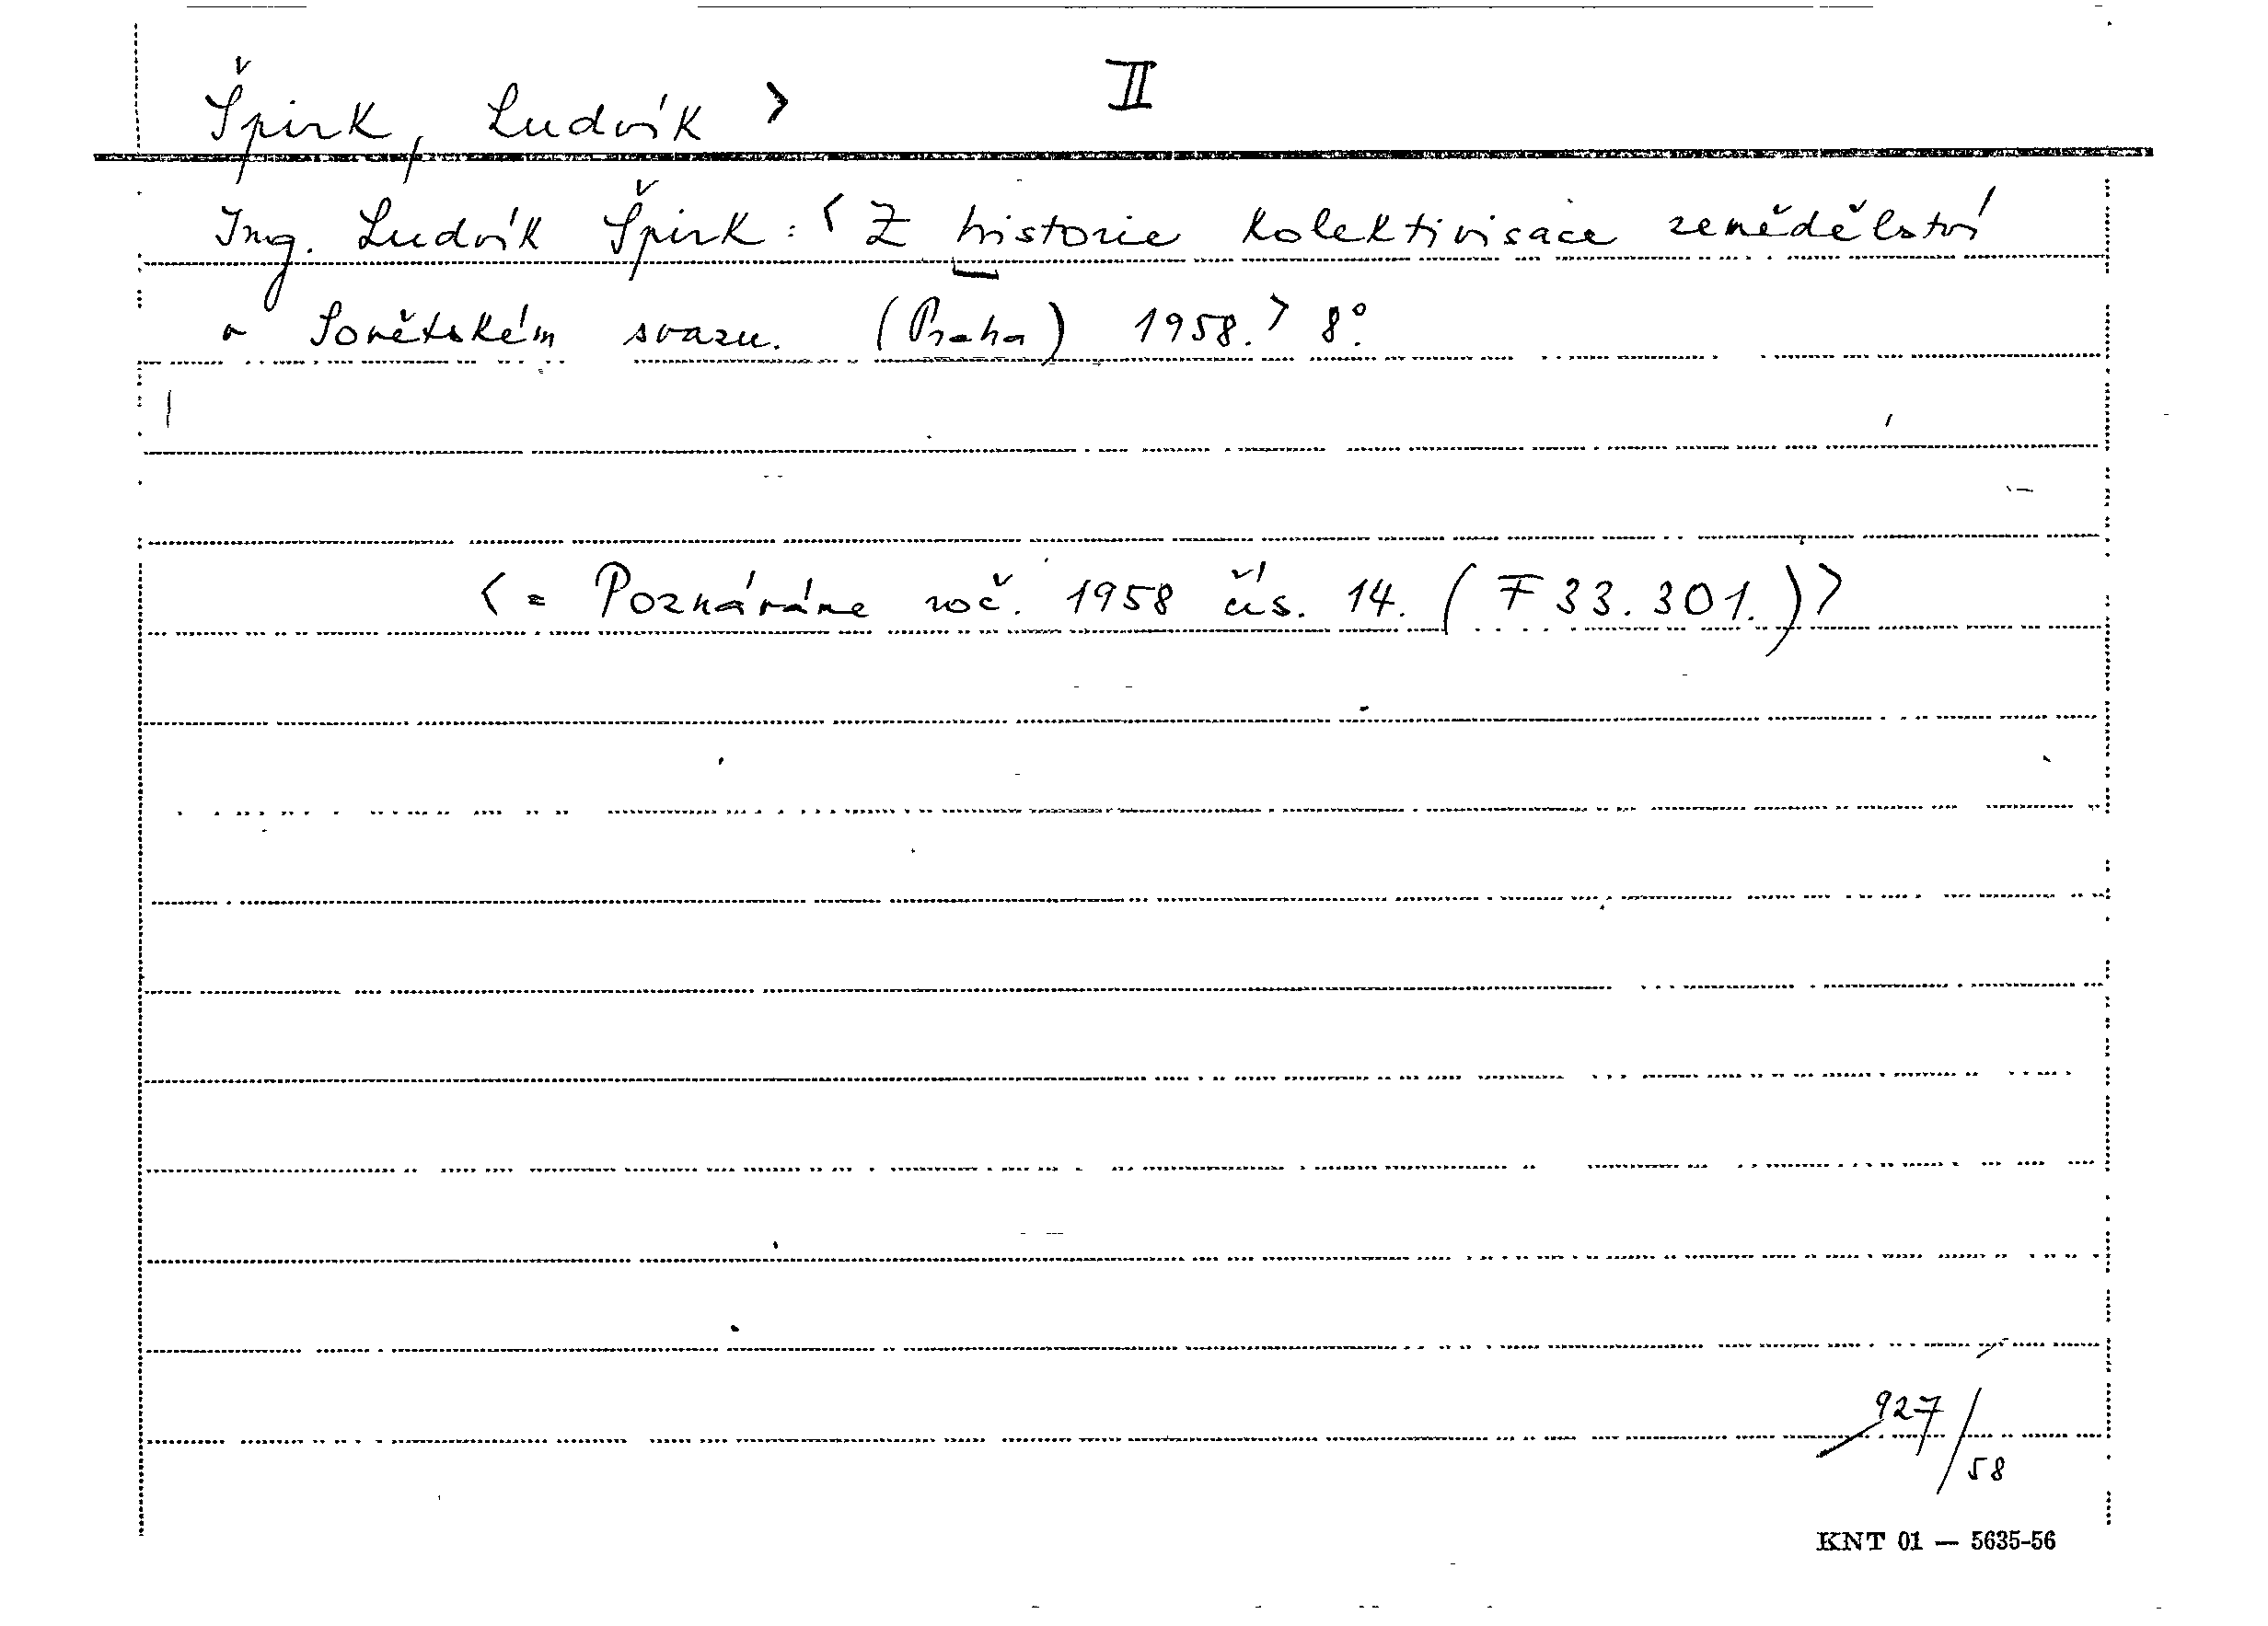 Špirk, Ludvík > II
Ing. Ludvík Špirk: < Z historie kolektivisace zemědělství
v Sovětském svazu. (Praha) 1958. > 8°.
< = Poznáváme roč. 1958 čís. 14. (F 33.301.) >
927/58
KNT 01 — 5635-56